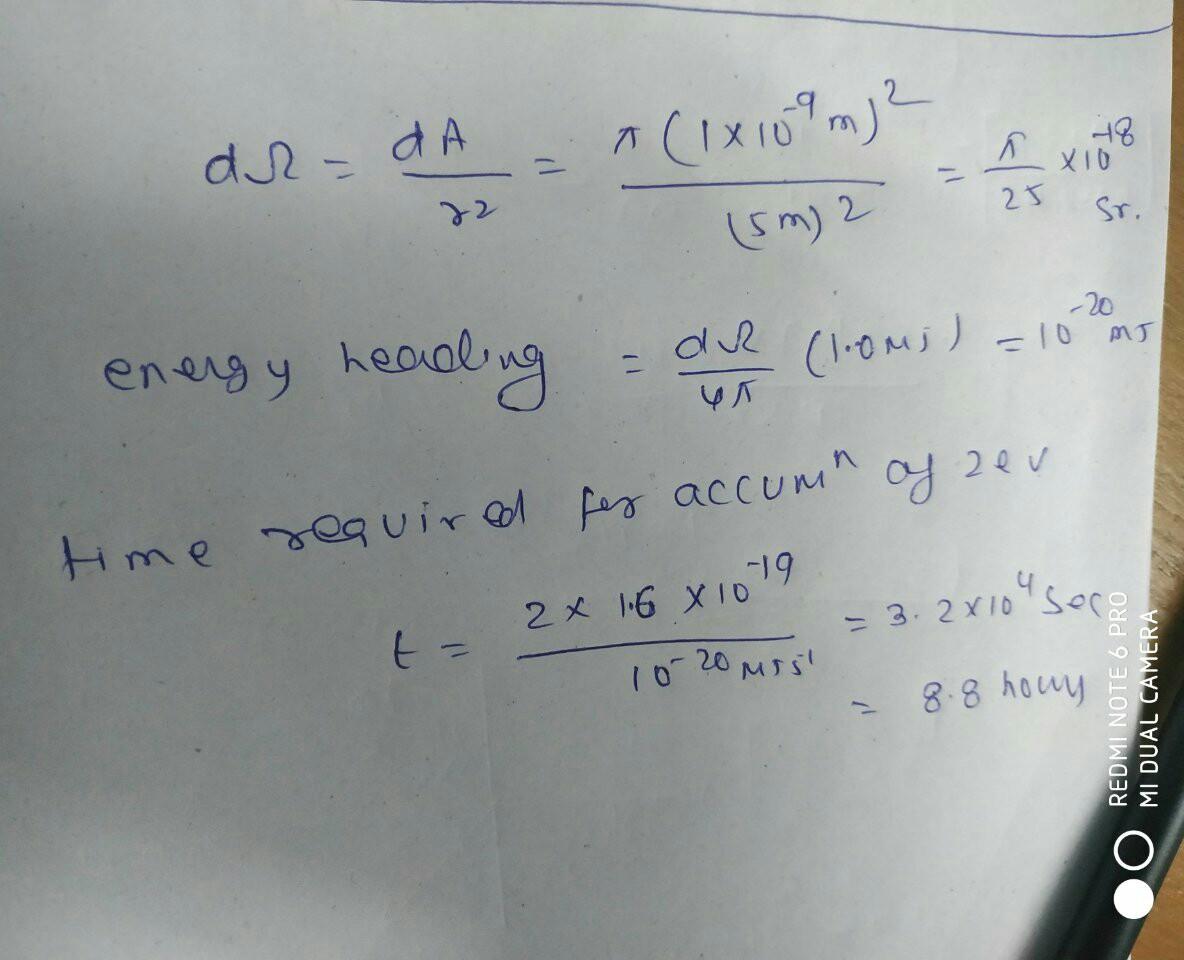 dΩ = dA / r2 = π (1×10^-9 m)^2 / (5m)^2 = π/25 ×10^-18 Sr.
energy heading = dΩ/4π (1.0 MJ) = 10^-20 MJ
time required for accum^n of 2ev
t = 2 × 1.6 × 10^-19 / 10^-20 MJ s^-1 = 3.2×10^4 Sec
= 8.8 hours
REDMI NOTE 6 PRO
MI DUAL CAMERA